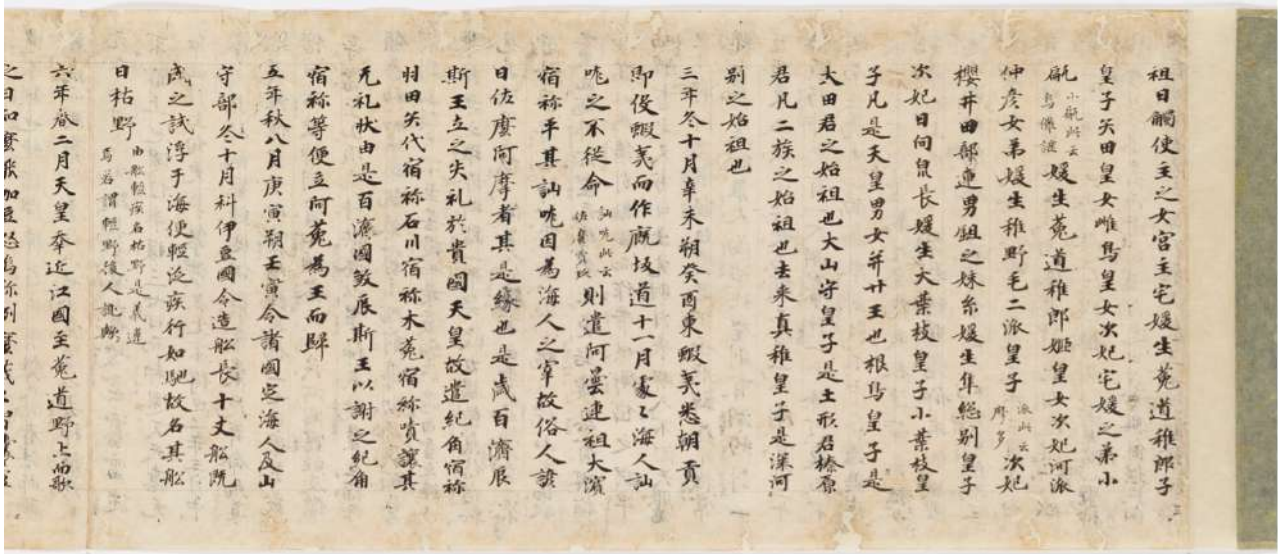 祖日觸使主之女宮主宅媛生菟道稚郎子
皇子矢田皇女雌鳥皇女次妃宅媛之弟小
甂小甂此云烏儺謎媛生菟道稚郎姬皇女次妃河派
仲彦女弟媛生稚野毛二派皇子派此云摩多次妃
櫻井田部連男鉏之妹糸媛生隼総別皇子
次妃日向泉長媛生大葉枝皇子小葉枝皇
子凡是天皇男女并廿王也根鳥皇子是
大田君之始祖也大山守皇子是土形君榛原
君凡二族之始祖也去来真稚皇子是深河
別之始祖也
三年冬十月辛未朔癸酉東蝦夷悉朝貢
即役蝦夷而作厩坂道十一月處々海人訕
哤之不從命訕哤此云佐麼賣玖則遣阿曇連祖大濱
宿祢平其訕哤因為海人之宰故俗人諺
曰佐麼阿摩者其是縁也是歳百濟辰
斯王立之失礼於貴國天皇故遣紀角宿祢
羽田矢代宿祢石川宿祢木菟宿祢嘖讓其
无礼状由是百濟國煞辰斯王以謝之紀角
宿祢等便立阿菟為王而歸
五年秋八月庚寅朔壬寅令諸國定海人及山
守部冬十月科伊豆國令造舩長十丈舩既
成之試浮于海便輕泛疾行如馳故名其舩
曰枯野由舩輕疾名枯野是義違焉若謂輕野後人訛歟
六年春二月天皇幸近江國至菟道野上而歌
之曰